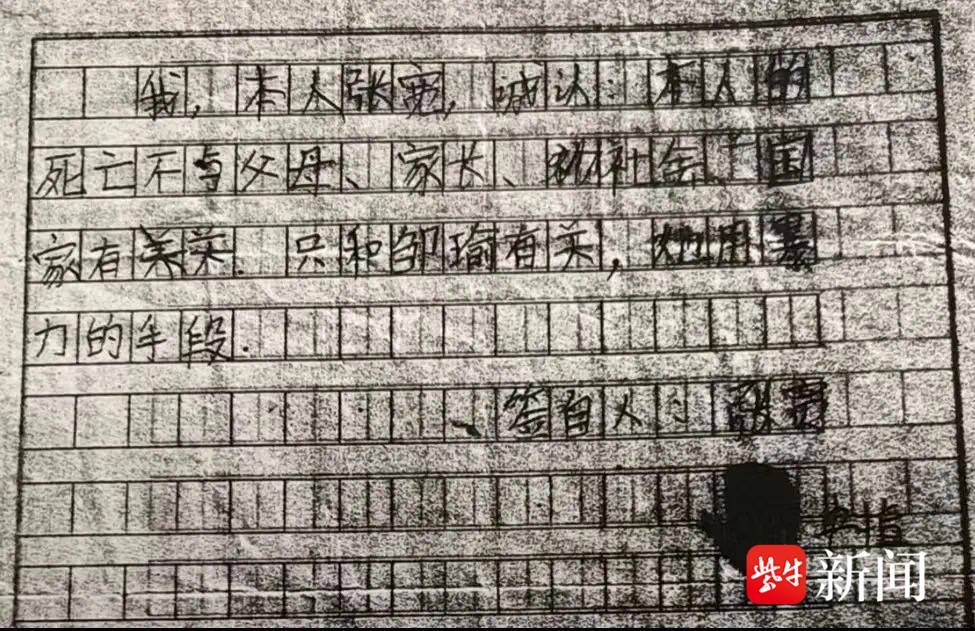 我，本人张宽，诚认：本人的
死亡不与父母、家长、和社会、国
家有关关. 只和邹瑜有关，她用暴
力的手段.
签自人：张宽
紫牛新闻